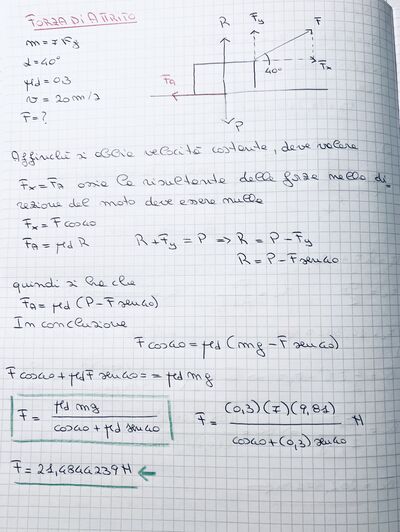 FORZA DI ATTRITO
m = 7 Kg
α = 40°
μd = 0,3
v = 20 m/s
F = ?
R
Fy
F
FA
40°
Fx
P
Affinché si abbia velocità costante, deve valere
Fx = FA ossia la risultante delle forze nella di_
rezione del moto deve essere nulla
Fx = F cos40
FA = μd R R + Fy = P ⇒ R = P - Fy
R = P - F sen40
quindi si ha che
FA = μd (P - F sen40)
In conclusione
F cos40 = μd (mg - F sen40)
F cos40 + μd F sen40 = = μd mg
F = μd mg / cos40 + μd sen40
F = (0,3)(7)(9,81) / cos40 + (0,3) sen40 N
F = 21,4844239 N ←